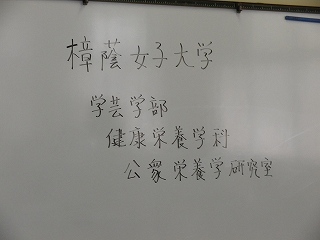 樟蔭女子大学
学芸学部
健康栄養学科
公衆栄養学研究室